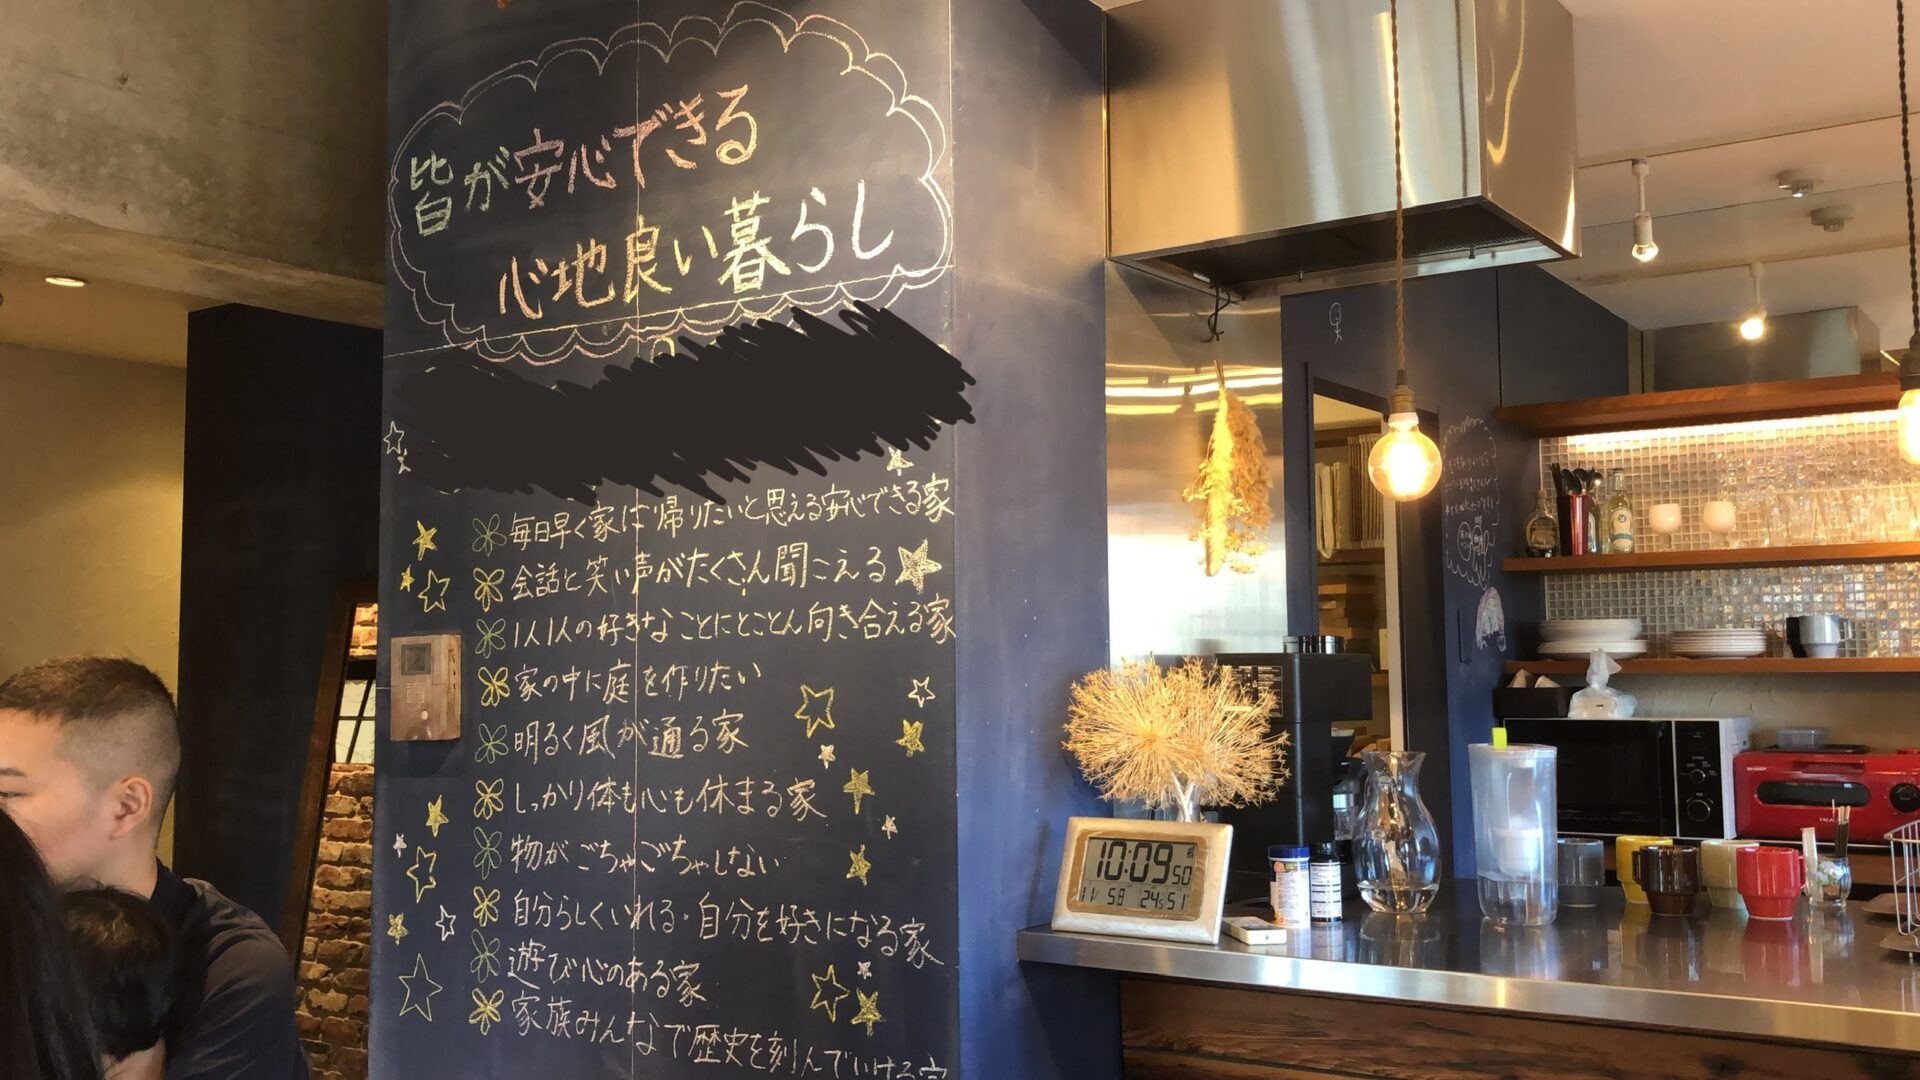 皆が安心できる
心地良い暮らし
毎日早く家に帰りたいと思える安心できる家
会話と笑い声がたくさん聞こえる
1人1人の好きなことにとことん向き合える家
家の中に庭を作りたい
明るく風が通る家
しっかり体も心も休まる家
物がごちゃごちゃしない
自分らしくいれる・自分を好きになる家
遊び心のある家
家族みんなで歴史を刻んでいける家
10:09 50
11/ 58 24.5 51
SHARP